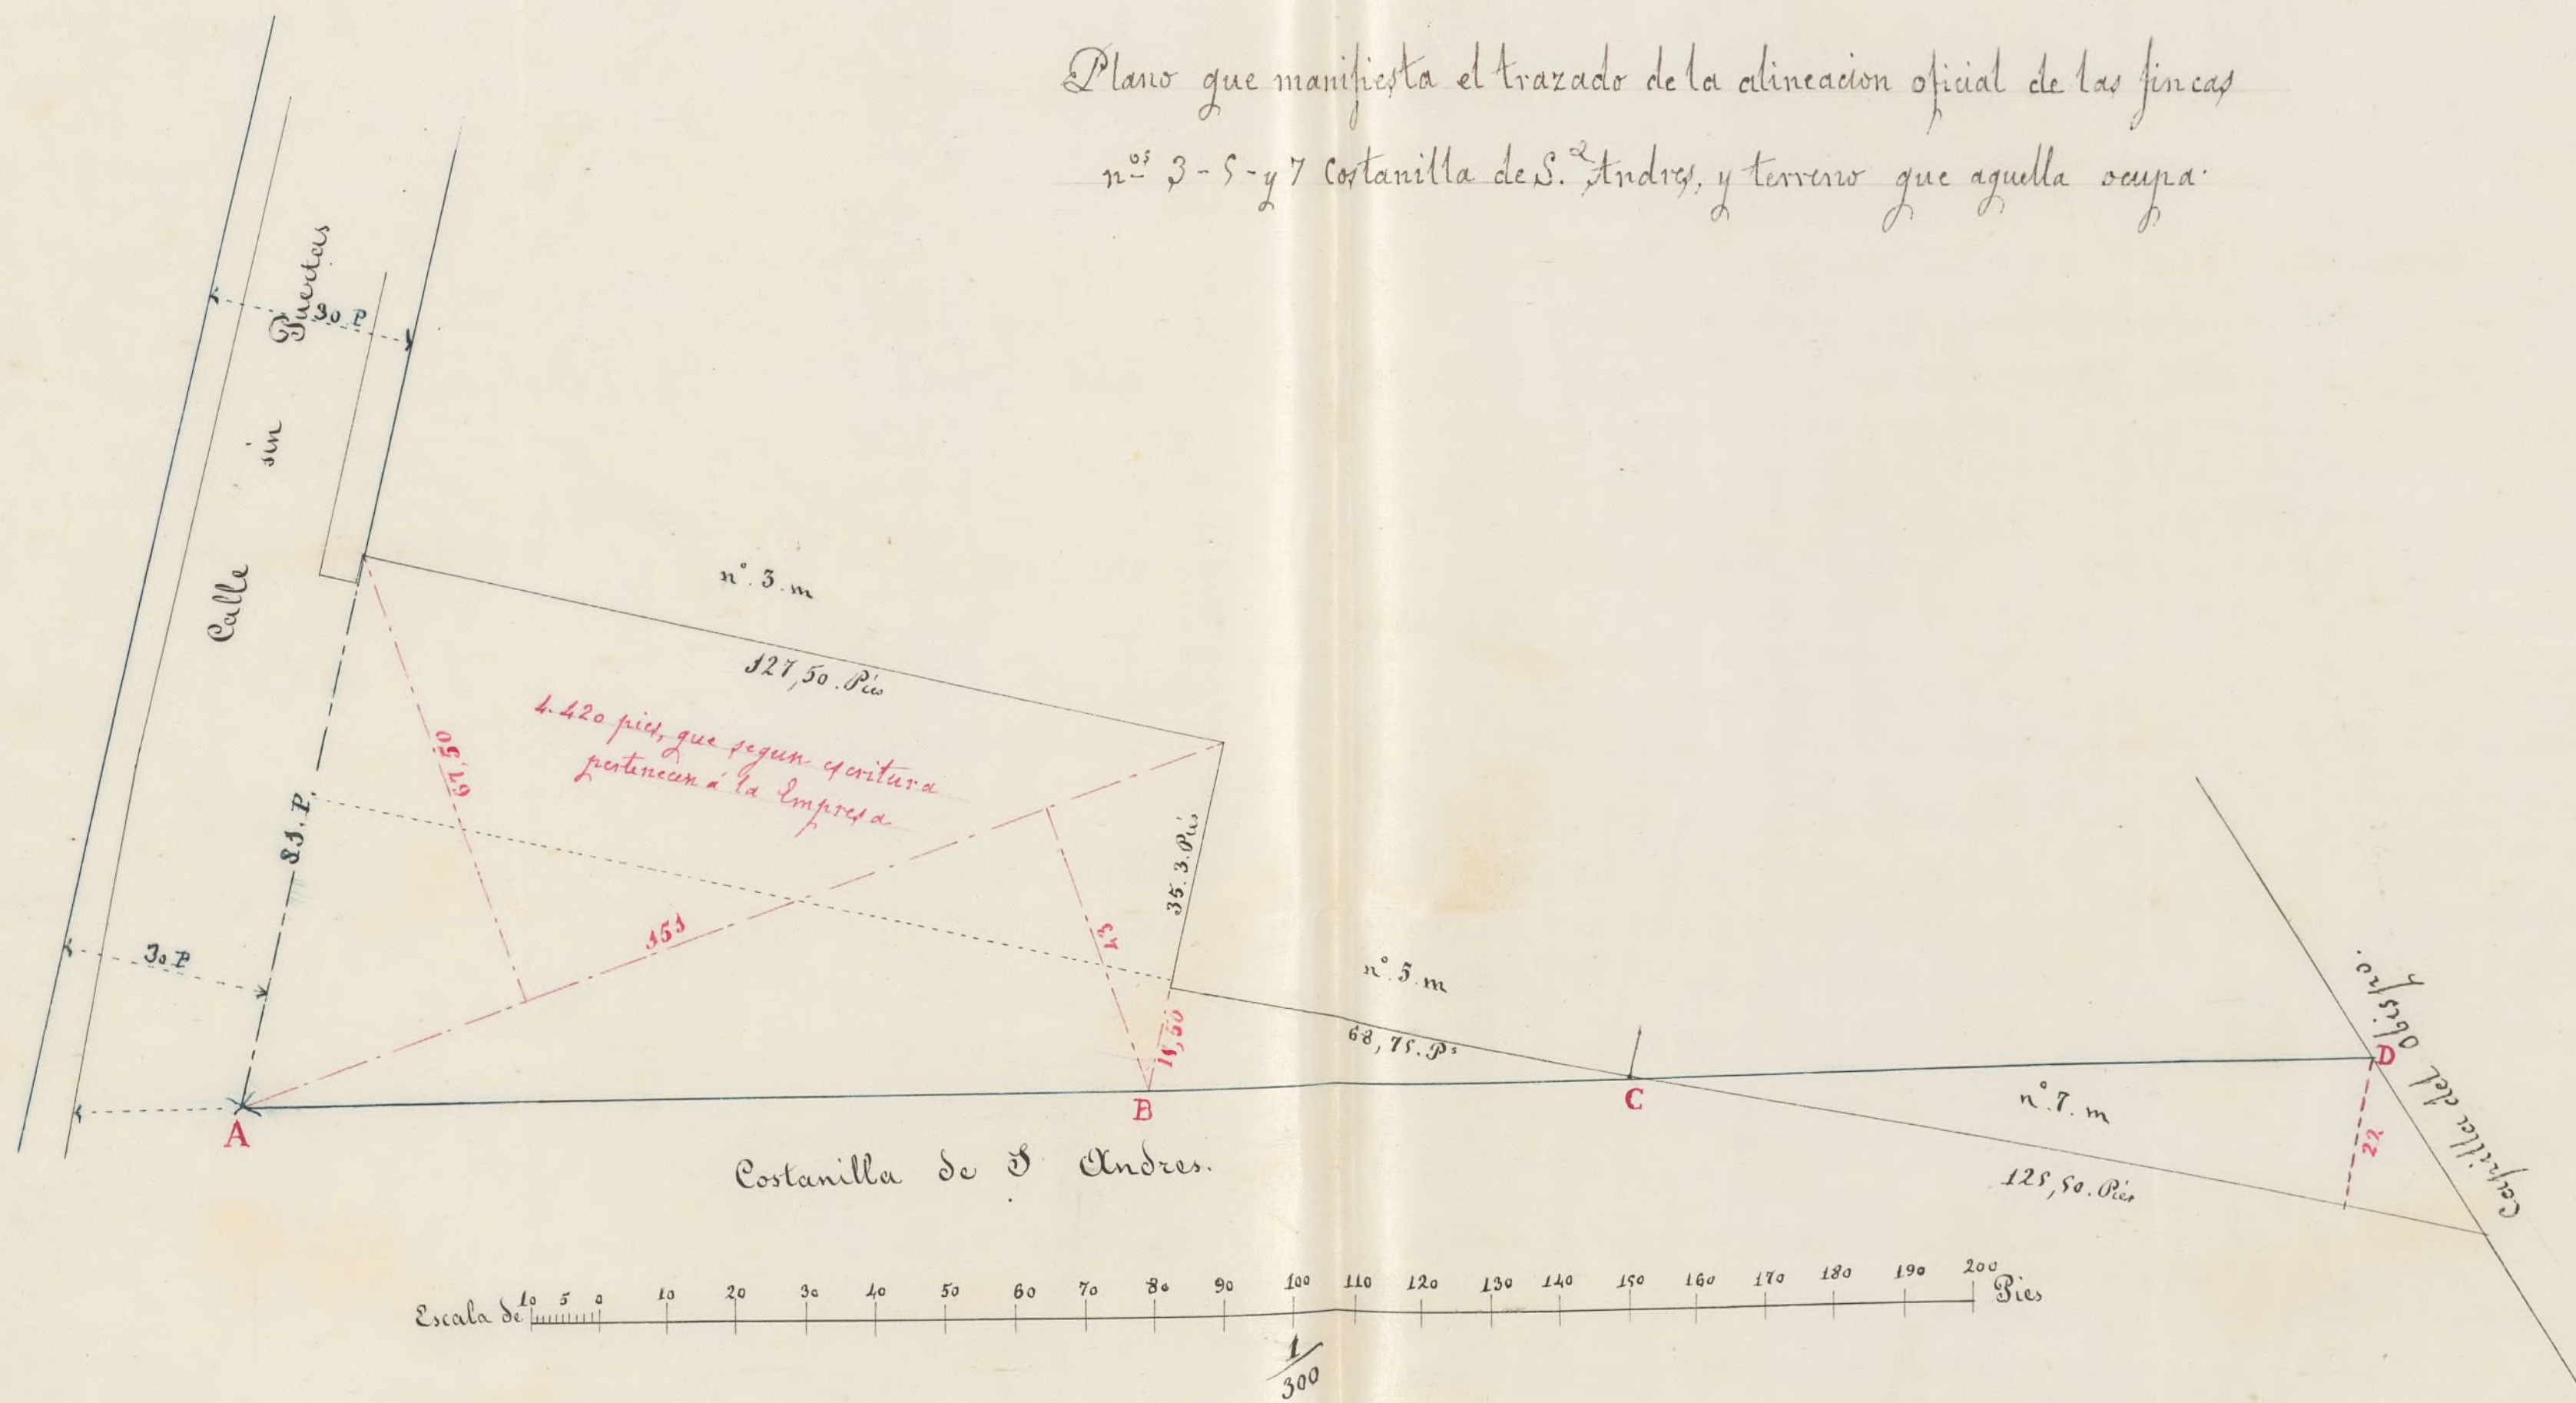 Plano que manifiesta el trazado de la alineacion oficial de las fincas
nos 3 - 5 - y 7 Costanilla de S. Andres, y terreno que aquella ocupa.
Calle sin Puertas
30 P
nº. 3. m
127,50. Piés
4.420 pies, que segun escritura
pertenecen á la Empresa
67,50
81. P.
151
43
35.3. Piés
15,50
30 P
nº. 5. m
68,75. Ps
A
B
C
D
nº. 7. m
125,50. Piés
22
Capilla del Obispo.
Costanilla de S. Andres.
Escala de 10 5 0 10 20 30 40 50 60 70 80 90 100 110 120 130 140 150 160 170 180 190 200 Pies
1/300